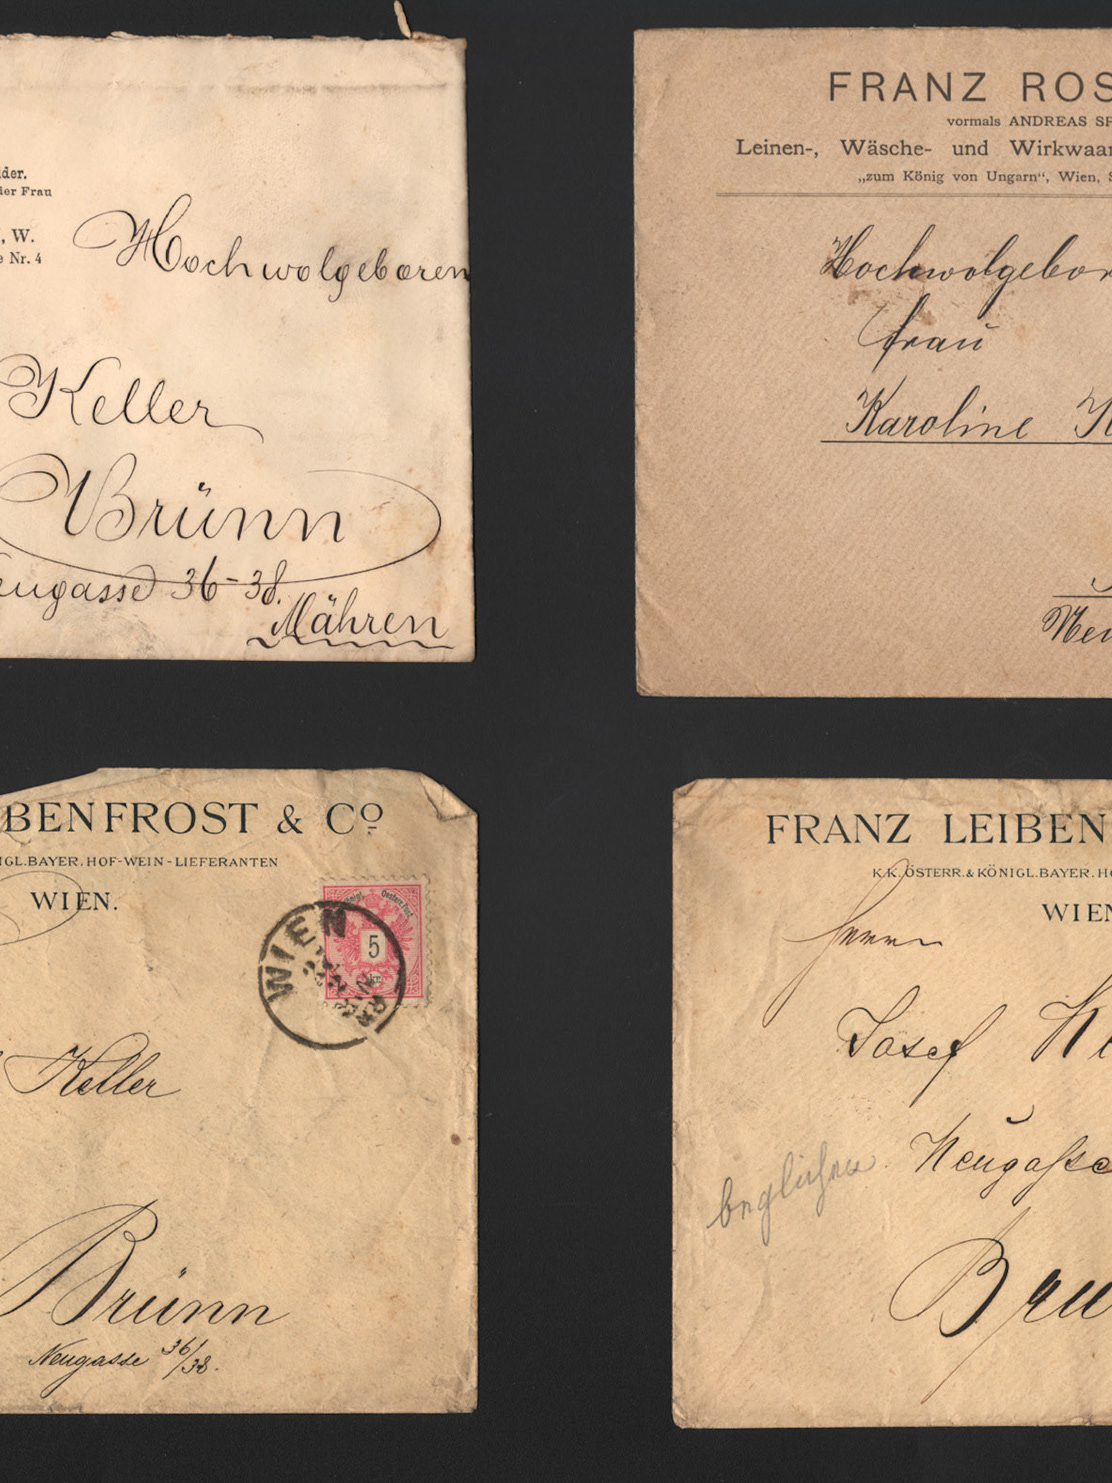 der.
der Frau
, W.
e Nr. 4
Hochwolgeboren
Keller
Brünn
eugasse 36-38.
Mähren
FRANZ ROS
vormals ANDREAS SP
Leinen-, Wäsche- und Wirkwaar
„zum König von Ungarn“, Wien, S
Hochwolgebor
Frau
Karoline K
Neu
BENFROST & Cº
IGL.BAYER.HOF-WEIN-LIEFERANTEN
WIEN.
5
kr.
WIEN
Keller
Brünn
Neugasse 36/38.
FRANZ LEIBEN
K.K.ÖSTERR.&KÖNIGL.BAYER.HO
WIEN
Herrn
Josef Ke
beglichen
Neugasse
Brü